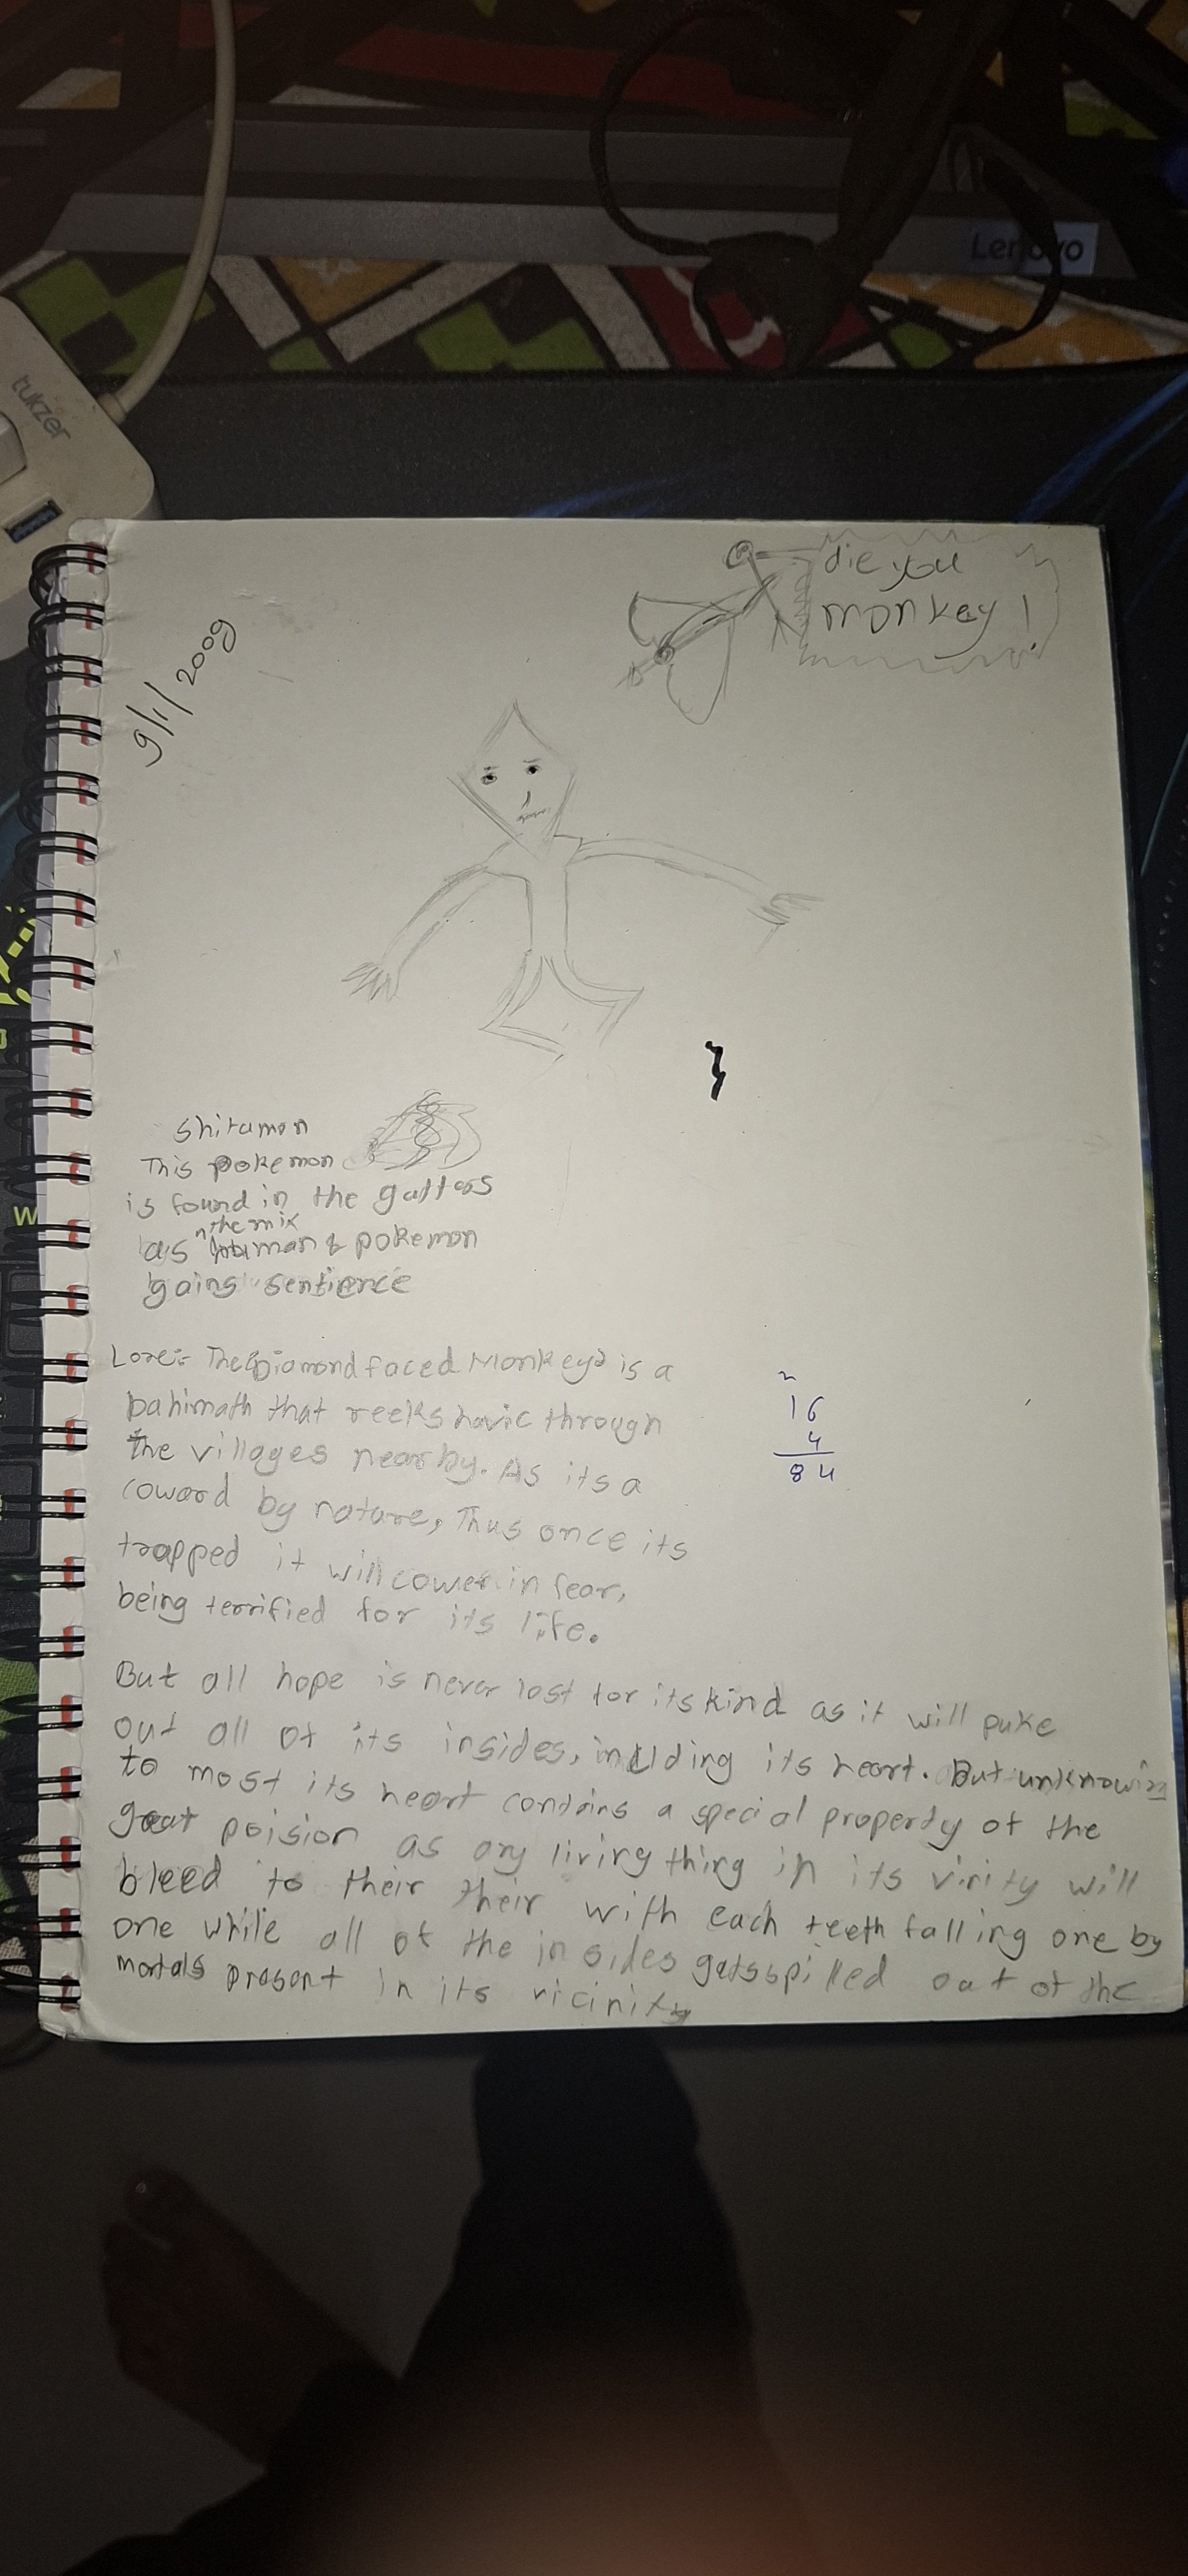 Lenovo
tukzer
die you
monkey !
9/1/2009
shitumon
This pokemon
is found in the gutters
as the mix human & pokemon
gains sentience
Lore:- The Diamond faced Monkey is a
bahimath that reeks havic through
the villages nearby. As its a
coward by nature, Thus once its
trapped it will cower in fear,
being terrified for its life.
16
4
84
But all hope is never lost for its kind as it will puke
out all of its insides, inclding its heart. But unknowing
to most its heart contains a special property of the
great poision as any living thing in its virity will
bleed to their their with each teeth falling one by
one while all of the insides gets spilled out of the
mortals present in its vicinity